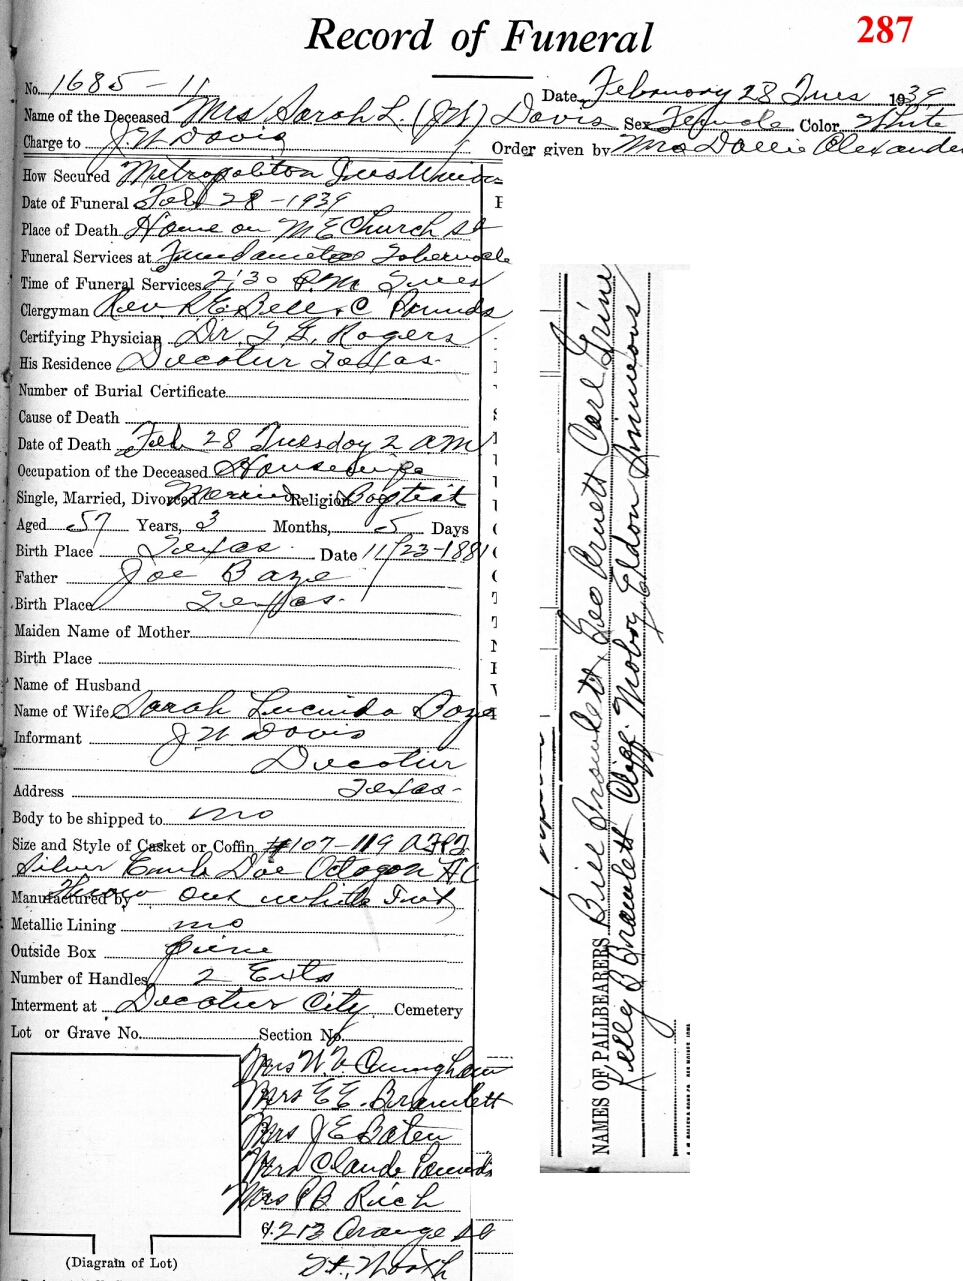 Record of Funeral
287
No. 1685 - 11
Date February 28 Tues 1939
Name of the Deceased Mrs Sarah L. (J W) Davis Sex Female Color White
Charge to J. W Davis
Order given by Mrs Dollie Alexander
How Secured Metropolitan Ins
Date of Funeral Feb 28 - 1939
Place of Death Home on M E Church St
Funeral Services at Fundamental Tabernacle
Time of Funeral Services 2:30 P.M. Tues
Clergyman Rev. R E Bell & C Pounds
Certifying Physician Dr. T G. Rogers
His Residence Decatur Texas.
Number of Burial Certificate
Cause of Death
Date of Death Feb 28 Tuesday 2 A M
Occupation of the Deceased Housewife
Single, Married, Divorced Married Religion Baptist
Aged 57 Years, 3 Months, 5 Days
Birth Place Texas. Date 11/23-1881
Father Joe Baze
Birth Place Texas.
Maiden Name of Mother
Birth Place
Name of Husband
Name of Wife Sarah Lucinda Baze
Informant J W Davis
Decatur
Address Texas-
Body to be shipped to no
Size and Style of Casket or Coffin #107-119
Silver Doe Octagon H C
Manufactured by out white Int
Metallic Lining no
Outside Box pine
Number of Handles 2 Exts
Interment at Decatur City Cemetery
Lot or Grave No. Section No.
Mrs W. V Cunningham
Mrs E E. Bramlett
Mrs J E Baten
Mrs Claude Pounds
Mrs P B Rich
4213 Orange St
Ft. Worth
(Diagram of Lot)
NAMES OF PALLBEARERS Bill Bramlett, Geo Arnett Carl Grine
Kelly B Bramlett Cliff Mobry, Eldon Simmons